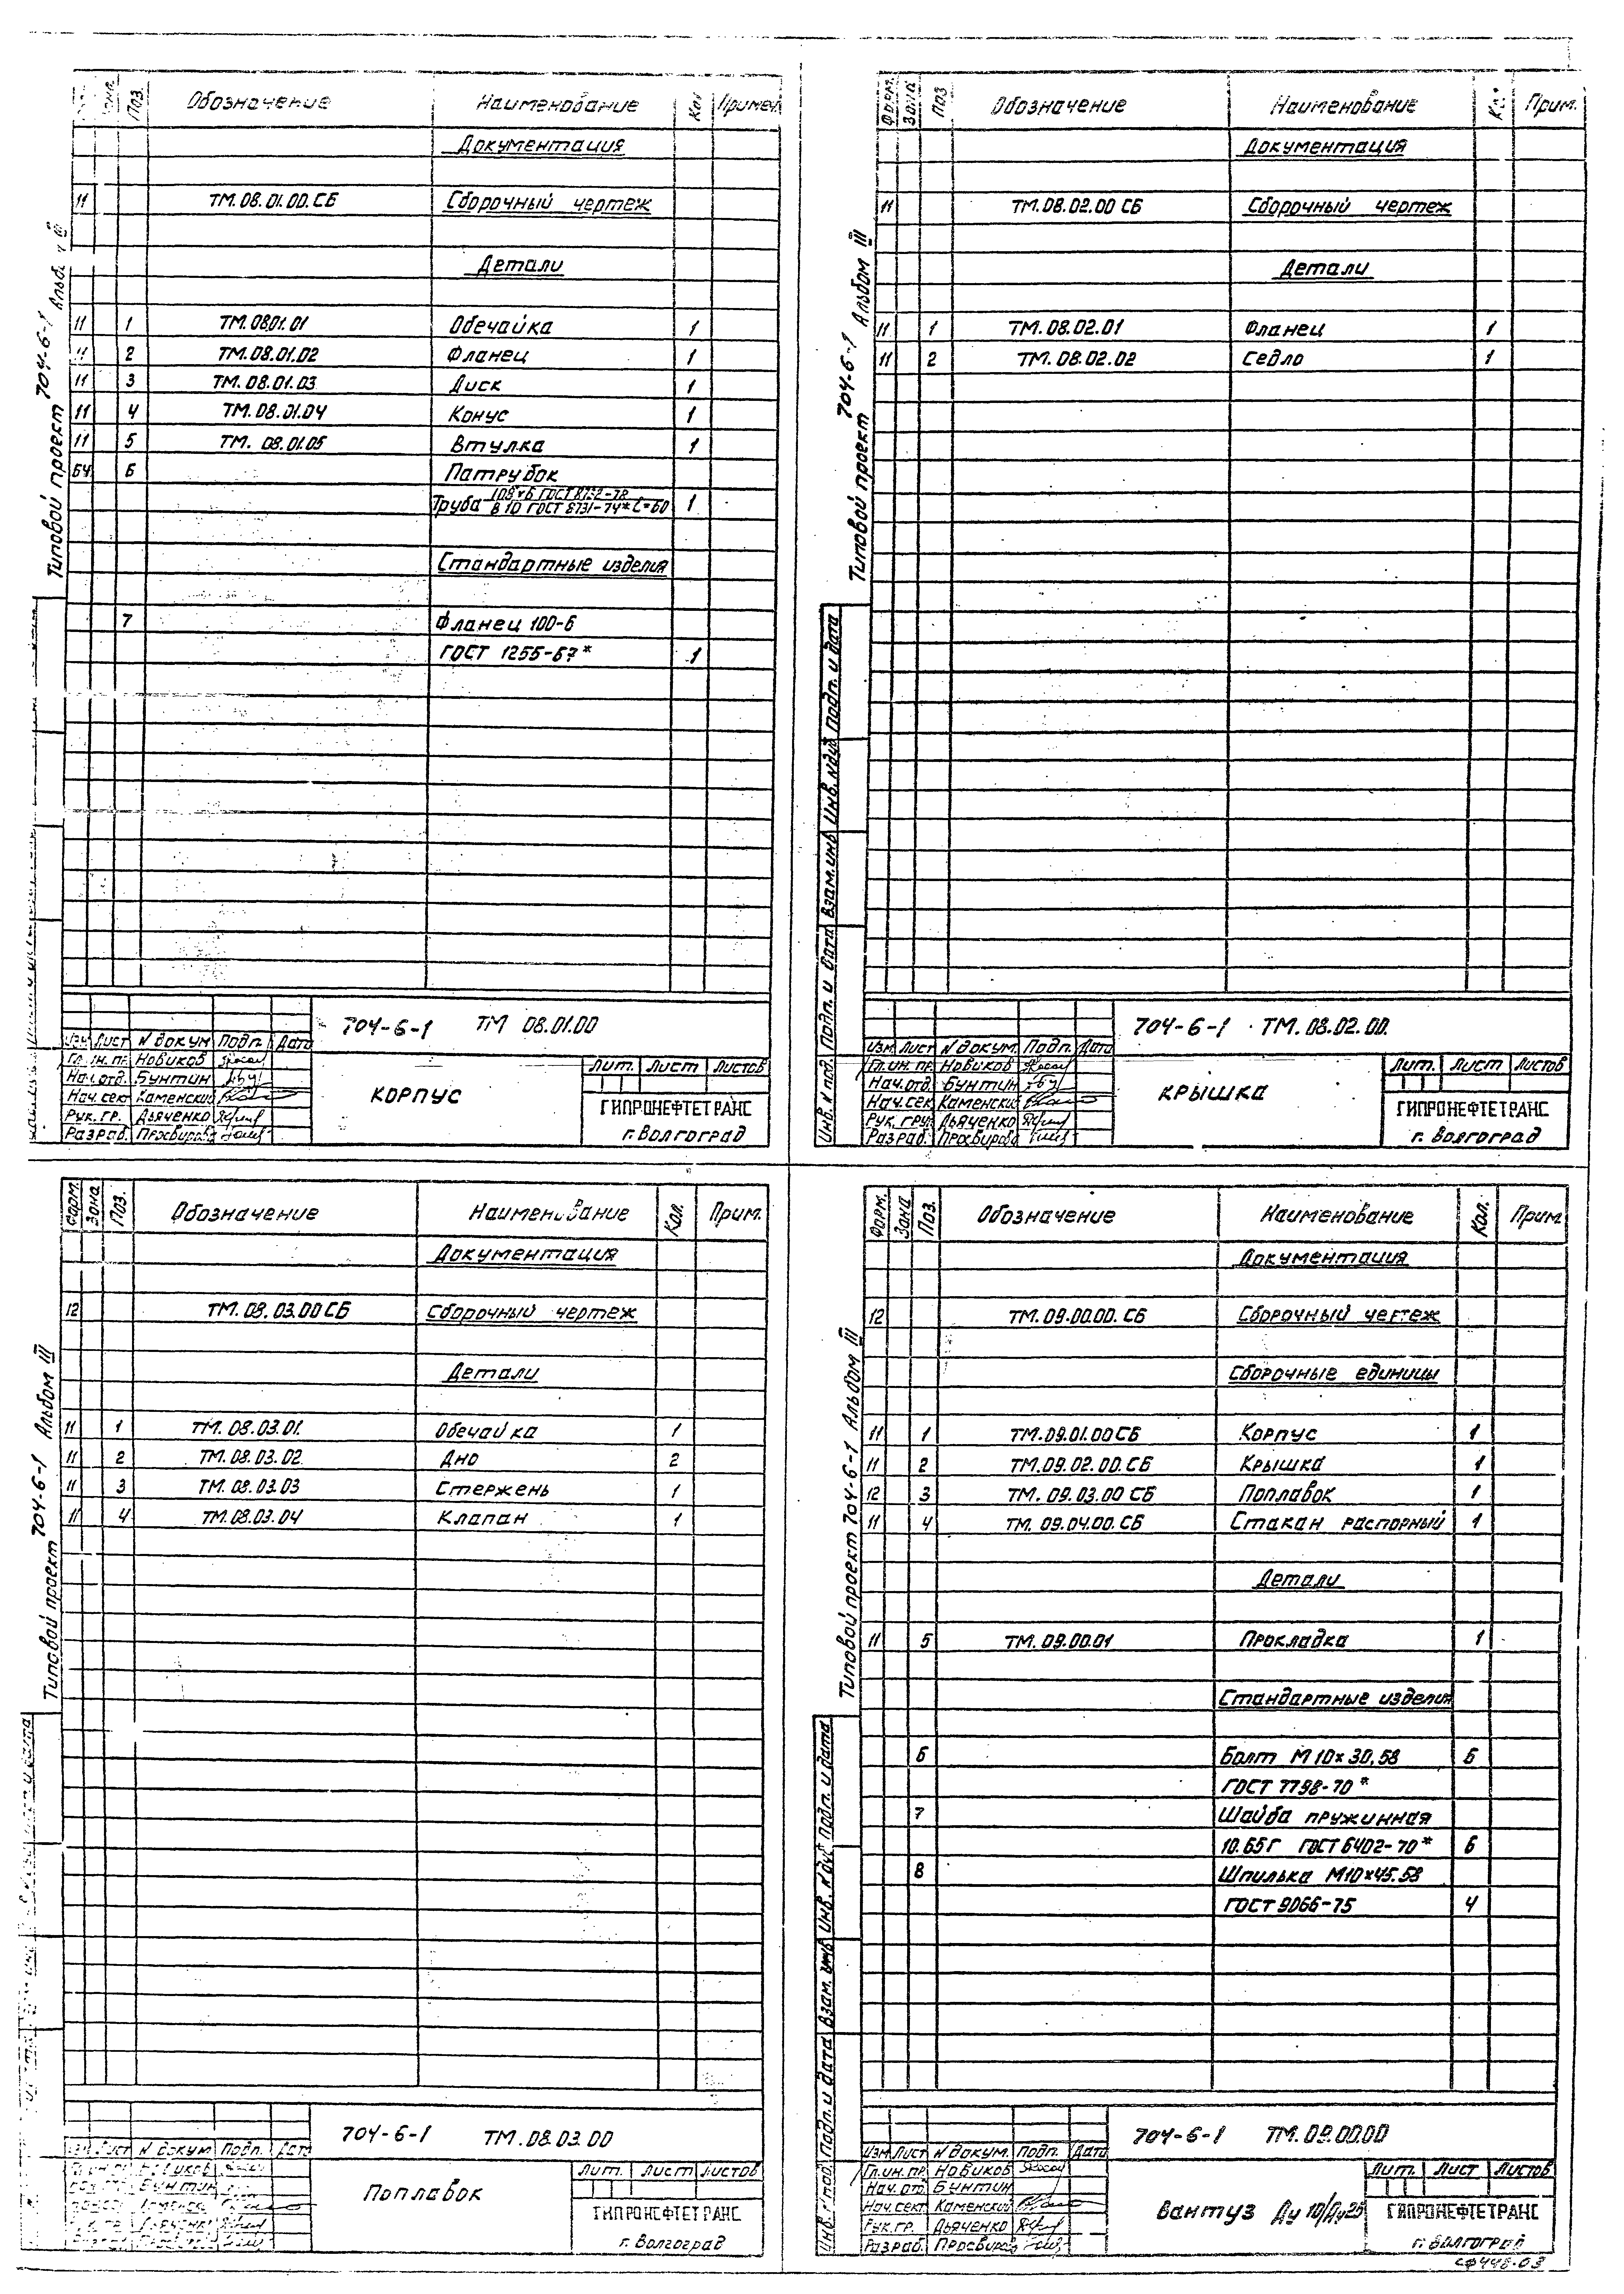 Типовой проект 704-6-1 Альб. III
Поз. Обозначение Наименование Кол Примеч.
Документация
11 ТМ.08.01.00.СБ Сборочный чертеж
Детали
11 1 ТМ.08.01.01 Обечайка 1
11 2 ТМ.08.01.02 Фланец 1
11 3 ТМ.08.01.03 Диск 1
11 4 ТМ.08.01.04 Конус 1
11 5 ТМ. 08.01.05 Втулка 1
БЧ 6 Патрубок
Труба 108×6 ГОСТ 8732-78
В 10 ГОСТ 8731-74* ℓ=60 1
Стандартные изделия
7 Фланец 100-6
ГОСТ 1255-67* 1
704-6-1 ТМ 08.01.00
Изм Лист N докум Подп. Дата
Гл.ин.пр. Новиков
Нач.отд. Бунтин
Нач.сек Каменский
Рук.гр. Дьяченко
Разраб. Просвирова
КОРПУС
Лит. Лист Листов
ГИПРОНЕФТЕТРАНС
г. Волгоград
Типовой проект 704-6-1 Альбом III
Форм. Зона Поз Обозначение Наименование Прим.
Документация
11 ТМ.08.02.00 СБ Сборочный чертеж
Детали
11 1 ТМ.08.02.01 Фланец 1
11 2 ТМ.08.02.02 Седло 1
Инв. N подл. Подп. и дата Взам.инв Инв. N дуб Подп. и дата
704-6-1 ТМ.08.02.00.
Изм Лист N докум. Подп. Дата
Гл.ин.пр. Новиков
Нач.отд. Бунтин
Нач.сек Каменский
Рук.груп Дьяченко
Разраб. Просвирова
КРЫШКА
Лит. Лист Листов
ГИПРОНЕФТЕТРАНС
г. Волгоград
Типовой проект 704-6-1 Альбом III
Форм. Зона Поз. Обозначение Наименование Кол. Прим.
Документация
12 ТМ.08.03.00 СБ Сборочный чертеж
Детали
11 1 ТМ.08.03.01. Обечайка 1
11 2 ТМ.08.03.02 Дно 2
11 3 ТМ.08.03.03 Стержень 1
11 4 ТМ.08.03.04 Клапан 1
704-6-1 ТМ.08.03.00
Изм Лист N докум. Подп. Дата
Новиков
Бунтин
Каменск
Рук.гр. Дьяченко
Поплавок
Лит. Лист Листов
ГИПРОНЕФТЕТРАНС
г. Волгоград
Типовой проект 704-6-1 Альбом III
Форм. Зона Поз. Обозначение Наименование Кол. Прим
Документация
12 ТМ.09.00.00. СБ Сборочный чертеж
Сборочные единицы
11 1 ТМ.09.01.00 СБ Корпус 1
11 2 ТМ.09.02.00.СБ Крышка 1
12 3 ТМ. 09.03.00 СБ Поплавок 1
11 4 ТМ. 09.04.00. СБ Стакан распорный 1
Детали
11 5 ТМ.09.00.01 Прокладка 1
Стандартные изделия
6 Болт М10×30,58 6
ГОСТ 7798-70*
7 Шайба пружинная
10.65Г ГОСТ 6402-70* 6
8 Шпилька М10×45.58
ГОСТ 9066-75 4
Инв. N подл. Подп. и дата Взам. инв Инв. N дуб Подп. и дата
704-6-1 ТМ.09.00.00
Изм Лист N докум. Подп. Дата
Гл.ин.пр Новиков
Нач.отд. Бунтин
Нач.сект Каменский
Рук.гр. Дьяченко
Разраб. Просвиров
Вантуз Ду 10/Ду25
Лит. Лист Листов
ГИПРОНЕФТЕТРАНС
г. Волгоград
сф448-03